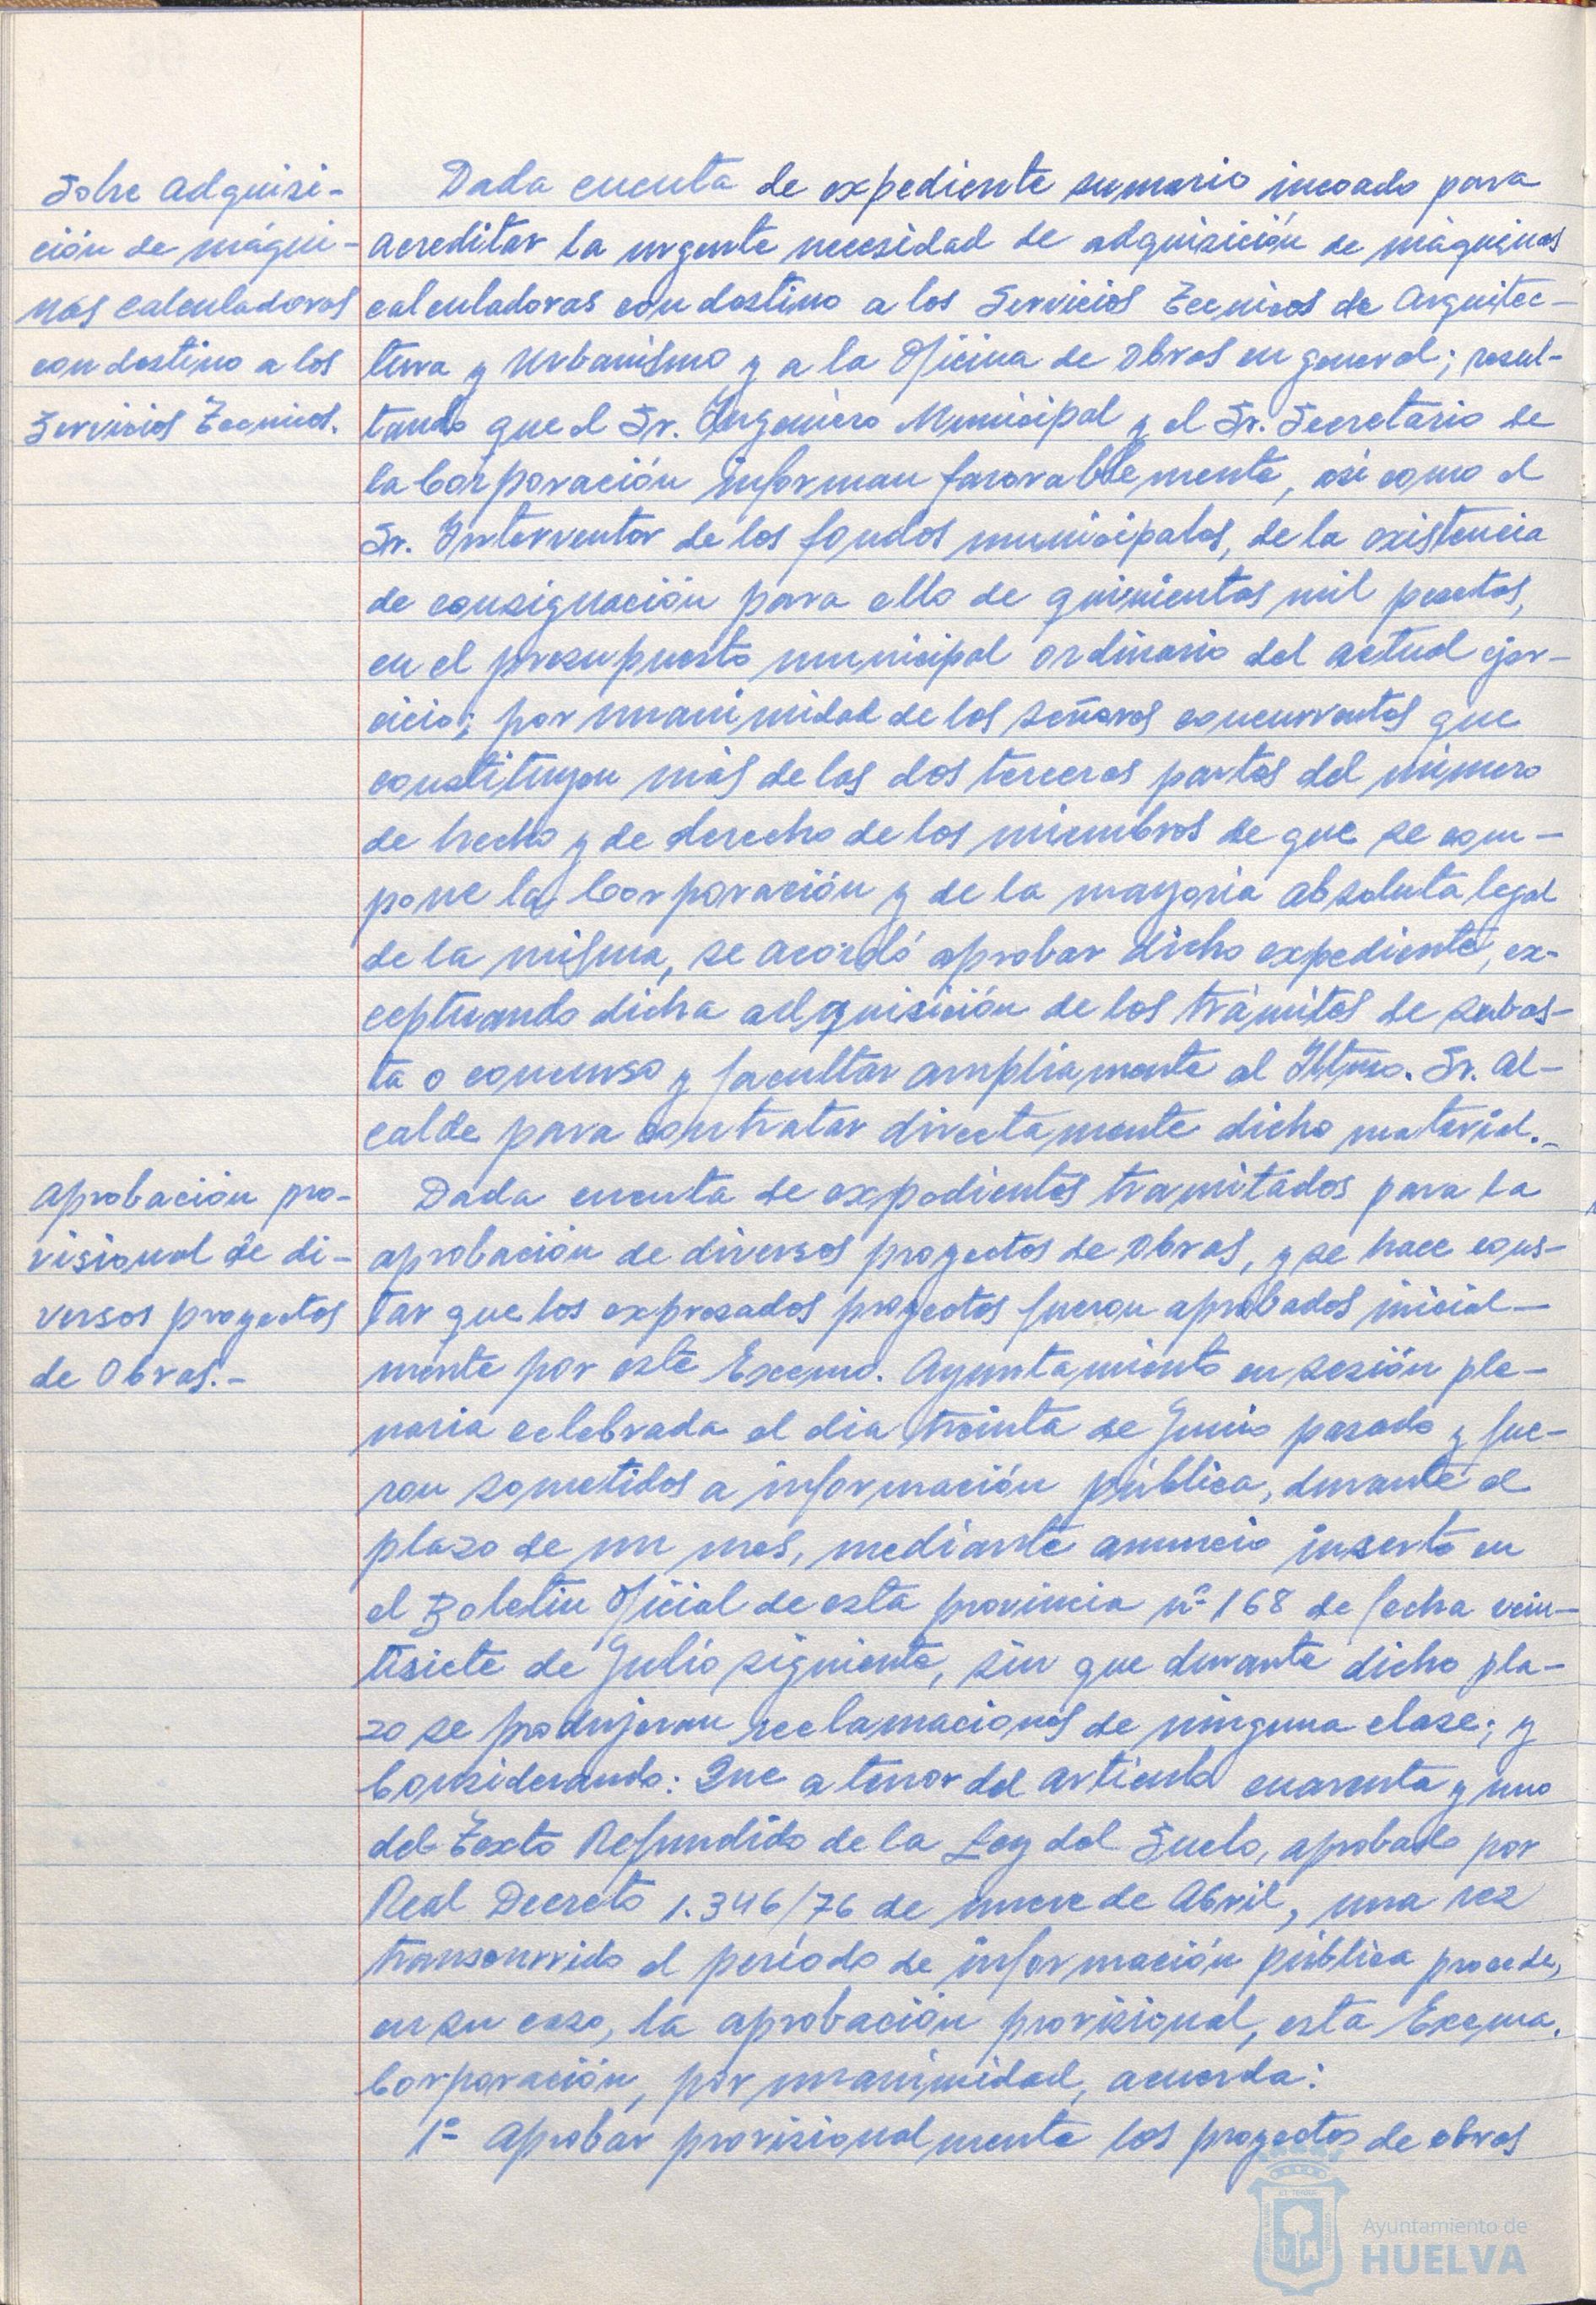 Sobre adquisi-
ción de máqui-
nas calculadoras
con destino a los
Servicios Tecnicos.
Dada cuenta de expediente sumario incoado para
acreditar la urgente necesidad de adquisición de máquinas
calculadoras con destino a los Servicios Tecnicos de Arquitec-
tura y Urbanismo y a la Oficina de Obras en general; resul-
tando que el Sr. Ingeniero Municipal y el Sr. Secretario de
la Corporación informan favorablemente, así como el
Sr. Interventor de los fondos municipales, de la existencia
de consignación para ello de quinientas mil pesetas,
en el presupuesto municipal ordinario del actual ejer-
cicio; por unanimidad de los señores concurrentes que
constituyen más de las dos terceras partes del número
de hecho y de derecho de los miembros de que se com-
pone la Corporación y de la mayoria absoluta legal
de la misma, se acordó aprobar dicho expediente, ex-
ceptuando dicha adquisición de los trámites de subas-
ta o concurso y facultar ampliamente al Iltmo. Sr. Al-
calde para contratar directamente dicho material.-
Aprobación pro-
visional de di-
versos proyectos
de Obras.-
Dada cuenta de expedientes tramitados para la
aprobación de diversos proyectos de Obras, y se hace cons-
tar que los expresados proyectos fueron aprobados inicial-
mente por este Excemo. Ayuntamiento en sesión ple-
naria celebrada el dia treinta de Junio pasado y fue-
ron sometidos a información pública, durante el
plazo de un mes, mediante anuncio inserto en
el Boletin Oficial de esta provincia nº 168 de fecha vein-
tisiete de Julio siguiente, sin que durante dicho pla-
zo se produjeran reclamaciones de ninguna clase; y
Considerando: Que a tenor del articulo cuarenta y uno
del Texto Refundido de la Ley del Suelo, aprobado por
Real Decreto 1.346/76 de nueve de Abril, una vez
transcurrido el período de información pública procede,
en su caso, la aprobación provisional, esta Excma.
Corporación, por unanimidad, acuerda:
1º- Aprobar provisionalmente los proyectos de obras
Ayuntamiento de
HUELVA